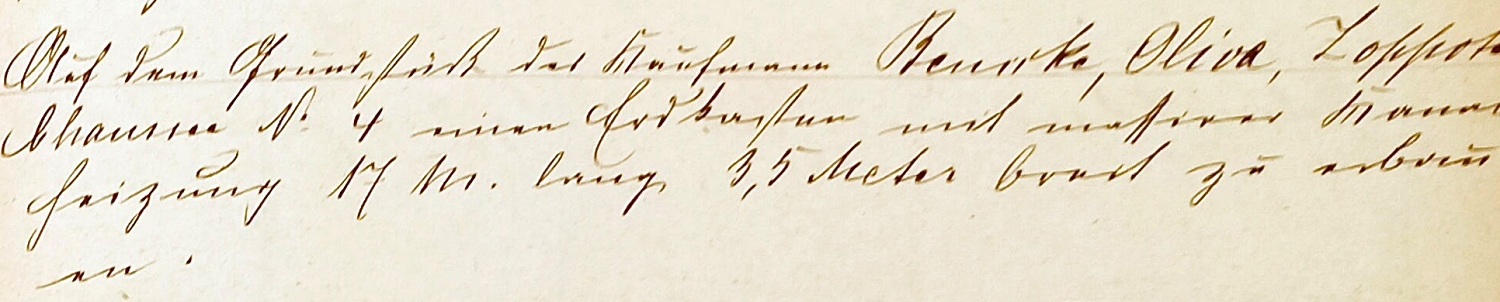 Auf dem Grundstück des Kaufmann Beneke, Oliva, Zoppote
Chaussee No 4 einen Erdkasten mit massiver Kanal
heizung 17 M. lang 3,5 Meter breit zu erbau
en.